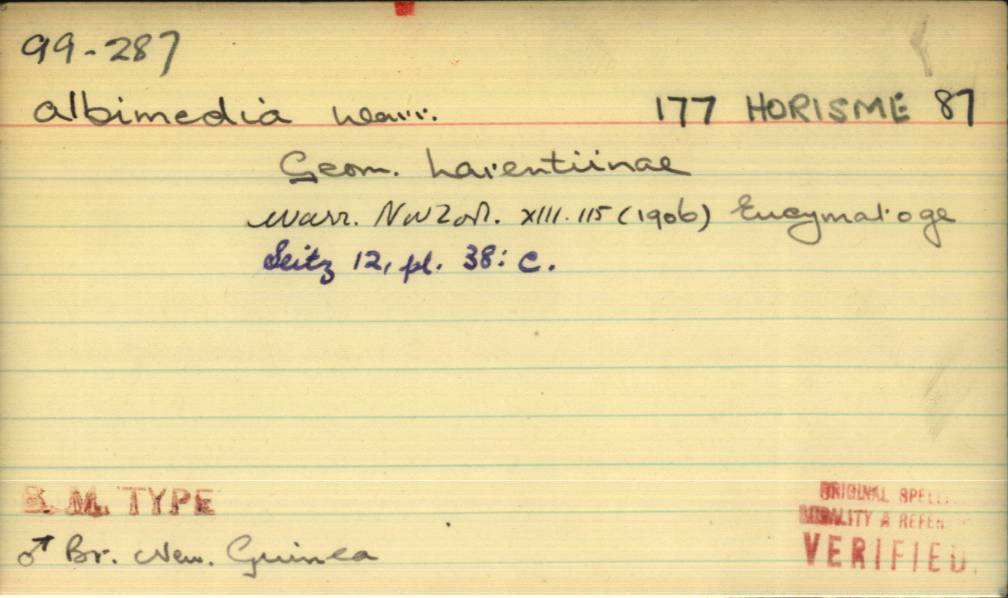 99-287
albimedia Warr. 177 HORISME 87
Geom. Larentiinae
Warr. Nov Zool. XIII. 115 (1906) Eucymatoge
Seitz 12, pl. 38: c.
B. M. TYPE
♂ Br. New. Guinea
ORIGINAL SPELL
LITY & REFER
VERIFIED.